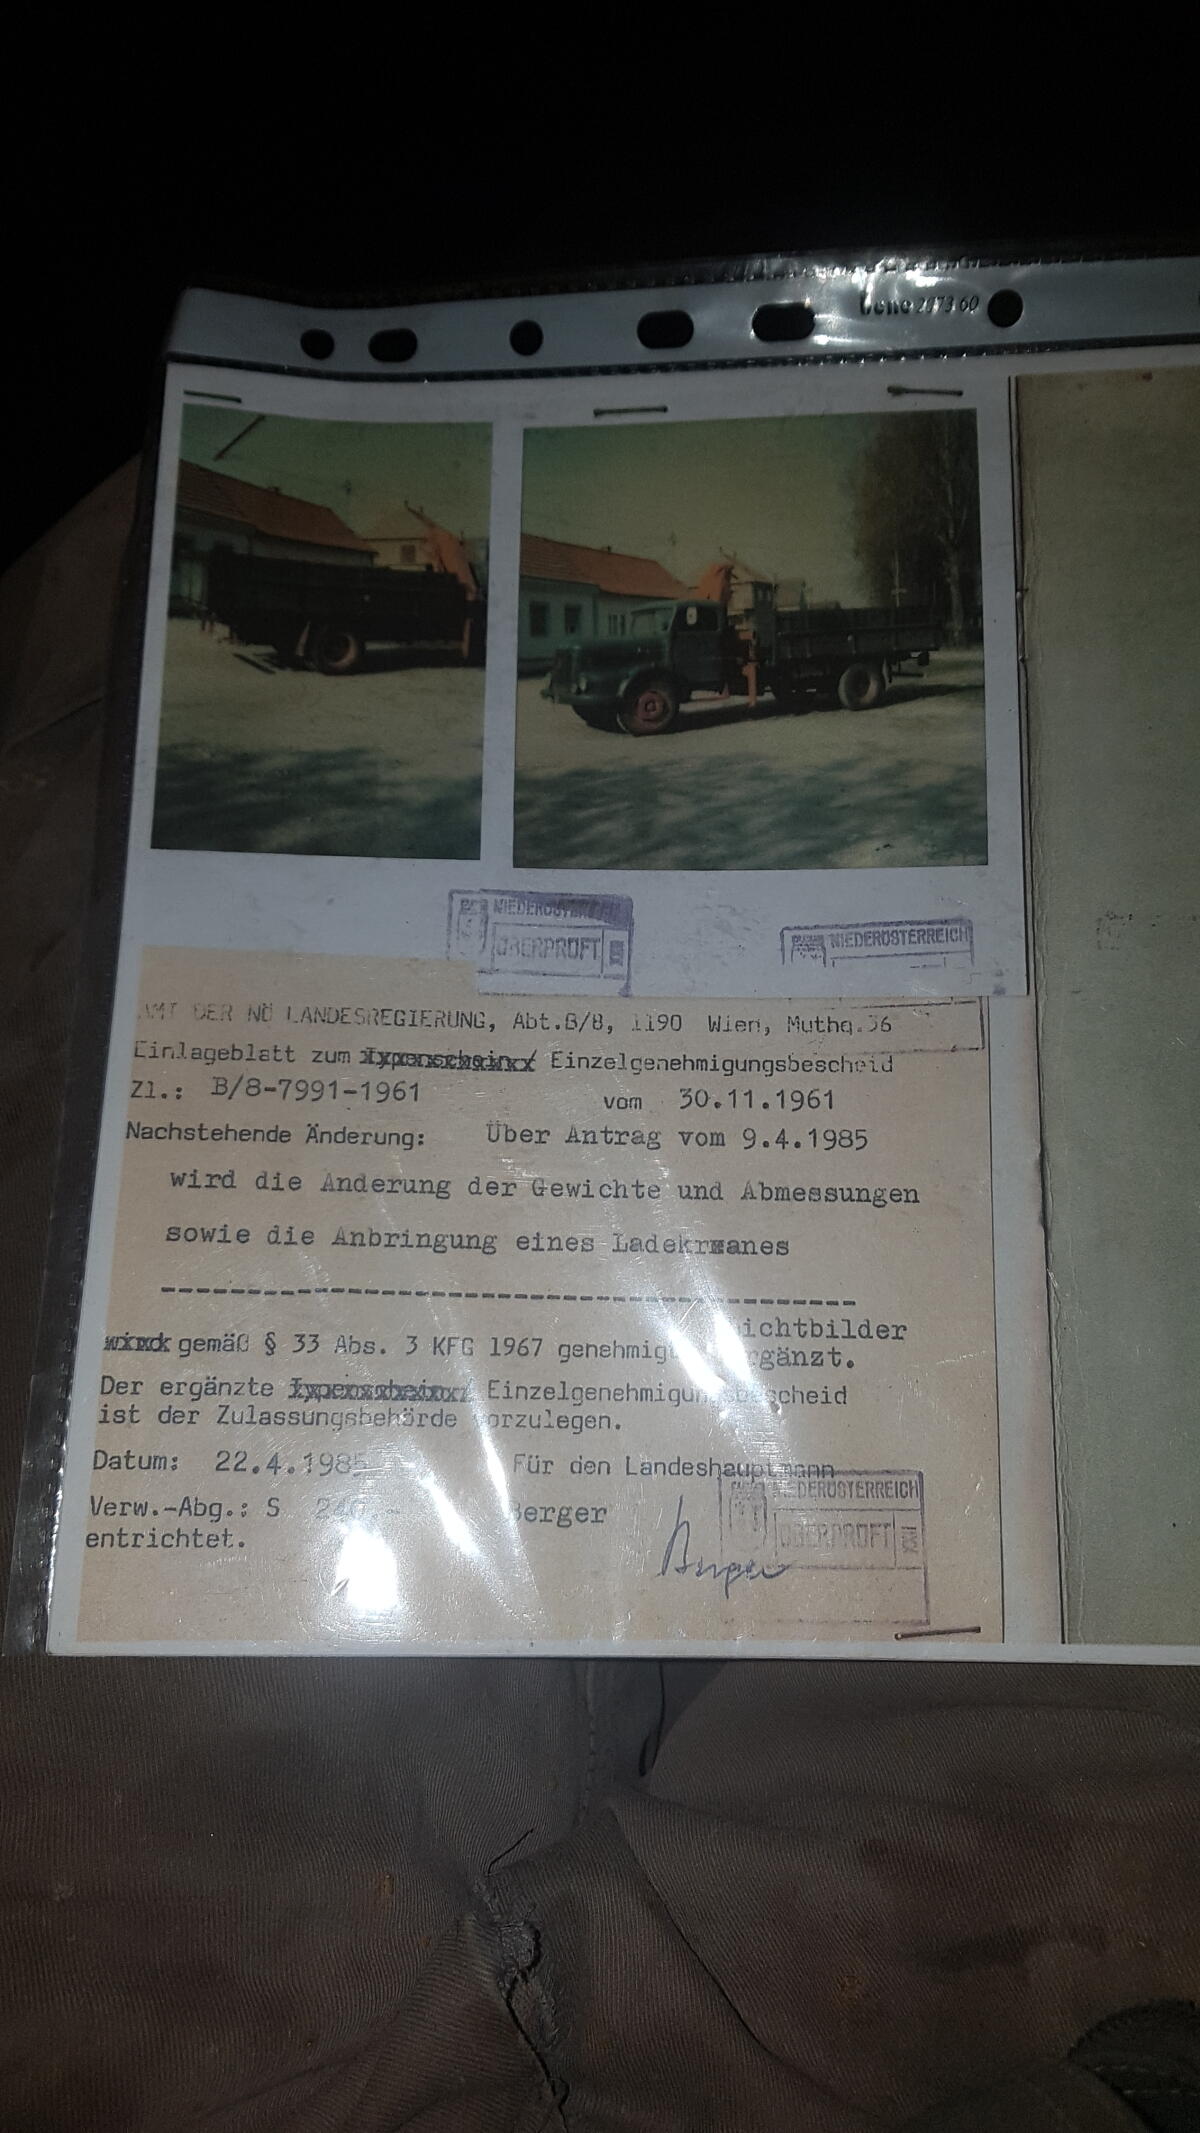 2073 60
NIEDERÖSTERREICH
ÜBERPRÜFT
NIEDERÖSTERREICH
AMT DER NÖ LANDESREGIERUNG, Abt.B/8, 1190 Wien, Muthg.36
Einlageblatt zum Typenschein / Einzelgenehmigungsbescheid
Zl.: B/8-7991-1961 vom 30.11.1961
Nachstehende Änderung: Über Antrag vom 9.4.1985
wird die Änderung der Gewichte und Abmessungen
sowie die Anbringung eines Ladekranes
ichtbilder
wird gemäß § 33 Abs. 3 KFG 1967 genehmig rgänzt.
Der ergänzte Typenschein / Einzelgenehmigungsbescheid
ist der Zulassungsbehörde vorzulegen.
Datum: 22.4.1985 Für den Landeshauptmann
Verw.-Abg.: S Berger
entrichtet.
NIEDERÖSTERREICH
ÜBERPRÜFT